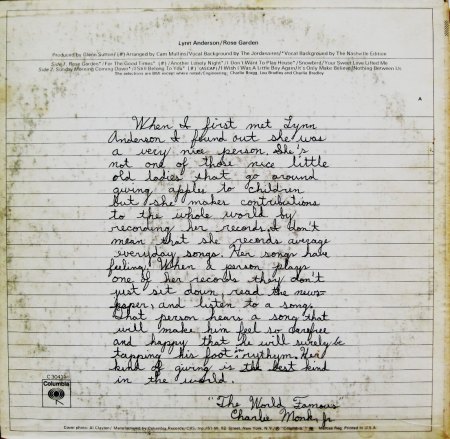 Lynn Anderson/Rose Garden
Produced by Glenn Sutton/(#) Arranged by Cam Mullins/Vocal Background by The Jordanaires/*Vocal Background by The Nashville Edition
Side 1 Rose Garden*/For The Good Times* (#)/Another Lonely Night*/I Don't Want To Play House*/Snowbird/Your Sweet Love Lifted Me
Side 2 Sunday Morning Coming Down*/I Still Belong To You* (#) (ASCAP)/I Wish I Was A Little Boy Again/It's Only Make Believe/Nothing Between Us
The selections are BMI except where noted./Engineering: Charlie Bragg, Lou Bradley and Charlie Bradley
A
When I first met Lynn
Anderson I found out she was
a very nice person. She's
not one of those nice little
old ladies that go around
giving apples to children
but she makes contributions
to the whole world by
recording her records. I don't
mean that she records average
everyday songs. Her songs have
feeling. When a person plays
one of her records they don't
just sit down, read the news-
paper, and listen to a song.
That person hears a song that
will make him feel so carefree
and happy that he will surely be
tapping his foot in rhythym. Her
kind of giving is the best kind
in the world.
"The World Famous"
Charlie Monk, Jr.
C 30411
Columbia
Cover photo: Al Clayton/Manufactured by Columbia Records/CBS, Inc./51 W. 52 Street, New York, N.Y./® "Columbia," Marcas Reg. Printed in U.S.A.